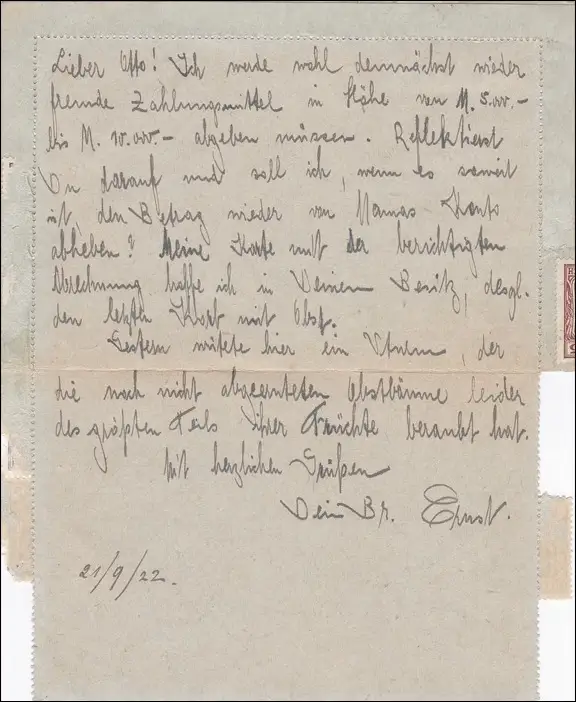 Lieber Otto! Ich werde wohl demnächst wieder
fremde Zahlungsmittel in Höhe von M. 5.000.-
bis M. 10.000.- abgeben müssen. Reflektierst
Du darauf und soll ich, wenn es soweit
ist, den Betrag wieder von Mamas Konto
abheben? Meine Karte mit der berichtigten
Abrechnung hoffe ich in Deinem Besitz, desgl.
den letzten Korb mit Obst.
Gestern wütete hier ein Sturm, der
die noch nicht abgeernteten Obstbäume leider
des größten Teils ihrer Früchte beraubt hat.
Mit herzlichen Grüßen
Dein Br. Ernst.
21/9/22.